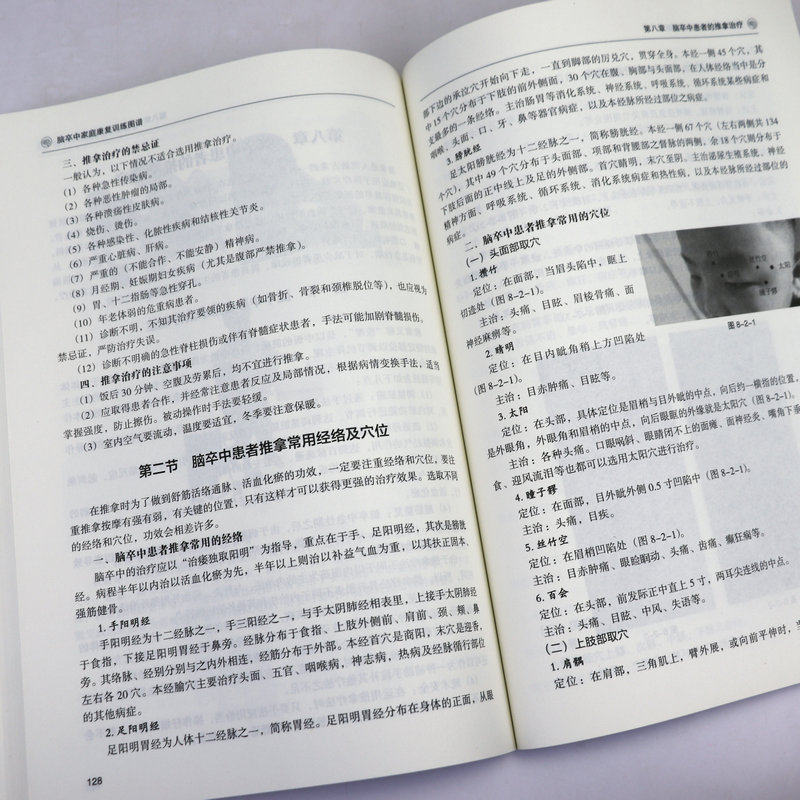 脑卒中家庭康复训练图谱
三、推拿治疗的禁忌证
一般认为，以下情况不适合选用推拿治疗。
（1）各种急性传染病。
（2）各种恶性肿瘤的局部。
（3）各种溃疡性皮肤病。
（4）烧伤、烫伤。
（5）各种感染性、化脓性疾病和结核性关节炎。
（6）严重心脏病、肝病。
（7）严重的（不能合作、不能安静）精神病。
（8）月经期、妊娠期妇女疾病（尤其是腹部严禁推拿）。
（9）胃、十二指肠等急性穿孔。
（10）年老体弱的危重病患者。
（11）诊断不明，不知其治疗要领的疾病（如骨折、骨裂和颈椎脱位等），也应视为
禁忌证，严防治疗失误。
（12）诊断不明确的急性脊柱损伤或伴有脊髓症状患者，手法可能加剧脊髓损伤。
四、推拿治疗的注意事项
（1）饭后30分钟、空腹及劳累后，均不宜进行推拿。
（2）应取得患者合作，并经常注意患者反应及局部情况，根据病情变换手法，适当
掌握强度，防止擦伤。被动操作时手法要轻缓。
（3）室内空气要流动，温度要适宜，冬季要注意保暖。
第二节 脑卒中患者推拿常用经络及穴位
在推拿时为了做到舒筋活络通脉、活血化瘀的功效，一定要注重经络和穴位，要注
重推拿按摩有强有弱，有关键的位置，只有这样才可以获得更强的治疗效果。选取不同
的经络和穴位，功效会相差许多。
一、脑卒中患者推拿常用的经络
脑卒中的治疗应以“治痿独取阳明”为指导，重点在于手、足阳明经，其次是膀胱
经。病程半年以内治以活血化瘀为先，半年以上则治以补益气血为重，以其扶正固本、
强筋健骨。
1.手阳明经
手阳明经为十二经脉之一，手三阳经之一，与手太阴肺经相表里，上接手太阴肺经
于食指，下接足阳明胃经于鼻旁。经脉分布于食指、上肢外侧前、肩前、颈、颊、鼻
旁。其络脉、经别分别与之内外相连，经筋分布于外部。本经首穴是商阳，末穴是迎香，
左右各20穴。本经腧穴主要治疗头面、五官、咽喉病，神志病，热病及经脉循行部位
的其他病症。
2.足阳明经
足阳明胃经为人体十二经脉之一，简称胃经。足阳明胃经分布在身体的正面，从眼
128
第八章 脑卒中患者的推拿治疗
部下边的承泣穴开始向下走，一直到脚部的厉兑穴，贯穿全身。本经一侧45个穴，其
中15个穴分布于下肢的前外侧面，30个穴在腹、胸部与头面部，在人体经络当中是分
支最多的一条经络。主治肠胃等消化系统、神经系统、呼吸系统、循环系统某些病症和
咽喉、头面、口、牙、鼻等器官病症，以及本经脉所经过部位之病症。
3.膀胱经
足太阳膀胱经为十二经脉之一，简称膀胱经。本经一侧67个穴（左右两侧共134
个穴），其中49个穴分布于头面部、项部和背腰部之督脉的两侧，余18个穴则分布于
下肢后面的正中线上及足的外侧部。首穴睛明，末穴至阴。主治泌尿生殖系统、神经
精神方面、呼吸系统、循环系统、消化系统病症和热性病，以及本经脉所经过部位的
病症。
二、脑卒中患者推拿常用的穴位
（一）头面部取穴
1.攒竹
定位：在面部，当眉头陷中，眶上
切迹处（图8-2-1）。
主治：头痛、目眩、眉棱骨痛、面
神经麻痹等。
丝竹空
太阳
瞳子髎
图8-2-1
2.睛明
定位：在目内眦角稍上方凹陷处
（图8-2-1）。
主治：目赤肿痛、目眩等。
3.太阳
定位：在头部，具体定位是眉梢与目外眦的中点，向后约一横指的位置，
是外眼角，外眼角和眉梢的中点，向后眼眶的外缘就是太阳穴（图8-2-1）。
主治：各种头痛。口眼㖞斜、眼睛闭不上的面瘫、面神经炎、嘴角下垂、
食、迎风流泪等也都可以选用太阳穴进行治疗。
4.瞳子髎
定位：在面部，目外眦外侧0.5寸凹陷中（图8-2-1）。
主治：头痛，目疾。
5.丝竹空
定位：在眉梢凹陷处（图8-2-1）。
主治：目赤肿痛、眼睑瞤动、头痛、齿痛、癫狂痫等。
6.百会
定位：在头部，前发际正中直上5寸，两耳尖连线的中点。
主治：头痛、目眩、中风、失语等。
（二）上肢部取穴
1.肩髃
定位：在肩部，三角肌上，臂外展，或向前平伸时，当